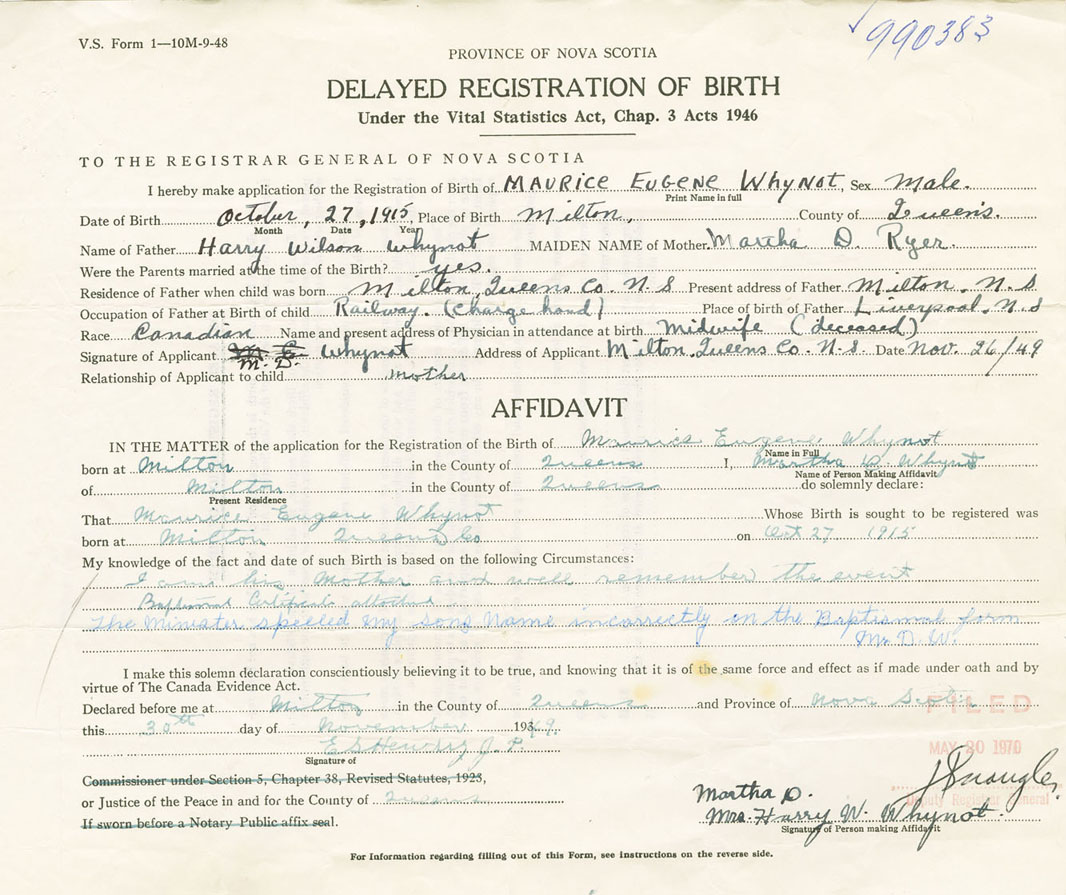 V.S. Form 1—10M-9-48
✓990383
PROVINCE OF NOVA SCOTIA
DELAYED REGISTRATION OF BIRTH
Under the Vital Statistics Act, Chap. 3 Acts 1946
TO THE REGISTRAR GENERAL OF NOVA SCOTIA
I hereby make application for the Registration of Birth of MAURICE EUGENE WhyNot, Sex Male.
Print Name in full
Date of Birth October, 27, 1915, Place of Birth Milton, County of Queen's.
Month Date Year
Name of Father Harry Wilson Whynot MAIDEN NAME of Mother Martha D. Ryer.
Were the Parents married at the time of the Birth? yes.
Residence of Father when child was born Milton, Queens Co. N.S Present address of Father Milton. N.S
Occupation of Father at Birth of child Railway. (Charge hand) Place of birth of Father Liverpool. N.S
Race Canadian Name and present address of Physician in attendance at birth Midwife (deceased)
Signature of Applicant M. D. Whynot Address of Applicant Milton. Queens Co. N.S. Date Nov. 26/49
Relationship of Applicant to child mother
AFFIDAVIT
IN THE MATTER of the application for the Registration of the Birth of Maurice Eugene Whynot
Name in Full
born at Milton in the County of Queens I, Martha D. Whynot
Name of Person Making Affidavit
of Milton in the County of Queens do solemnly declare:
Present Residence
That Maurice Eugene Whynot Whose Birth is sought to be registered was
born at Milton Queens Co on Oct 27 1915
My knowledge of the fact and date of such Birth is based on the following Circumstances:
I am his Mother and well remember the event
Baptismal Certificate attached
The Minister spelled my sons Name incorrectly on the Baptismal form
M. D. W.
I make this solemn declaration conscientiously believing it to be true, and knowing that it is of the same force and effect as if made under oath and by
virtue of The Canada Evidence Act.
Declared before me at Milton in the County of Queens and Province of Nova Scotia
FILED
this 30th day of November 1949.
MAY 20 1970
J. P.
Signature of
Commissioner under Section 5, Chapter 38, Revised Statutes, 1923,
or Justice of the Peace in and for the County of Queens
Deputy Registrar General
If sworn before a Notary Public affix seal.
Martha D.
Mrs. Harry W. Whynot.
Signature of Person making Affidavit
For Information regarding filling out of this Form, see instructions on the reverse side.